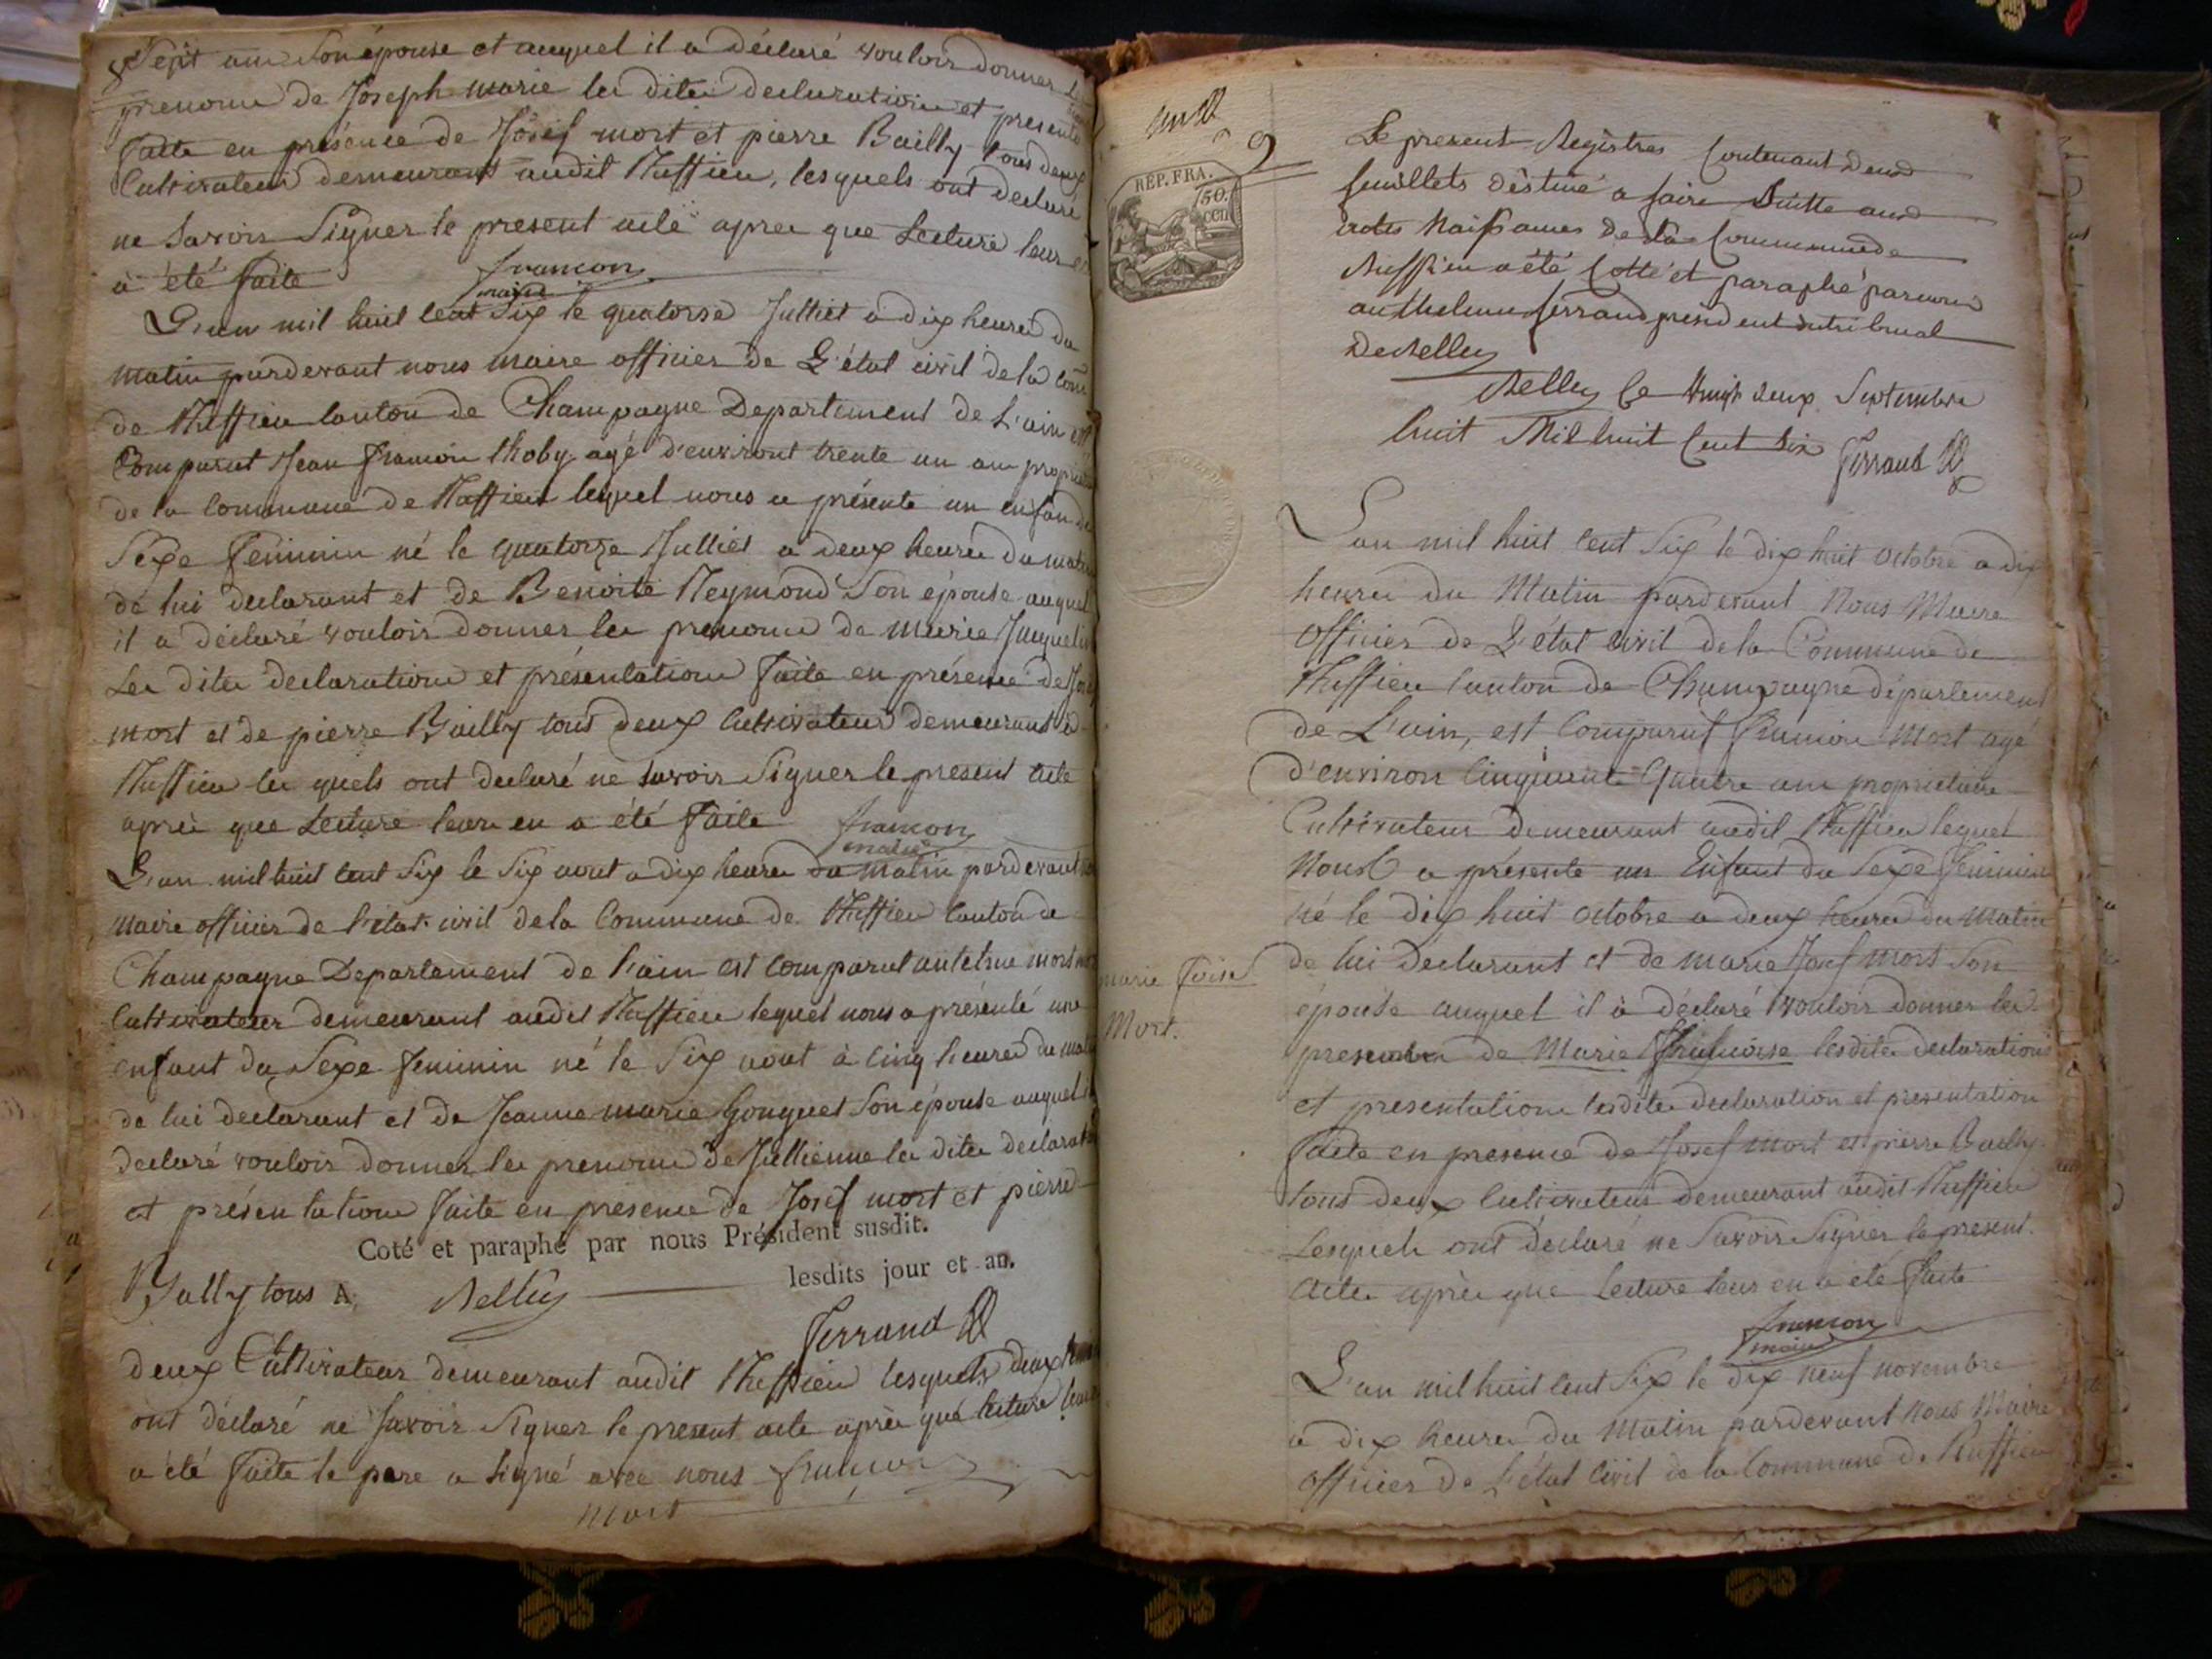 8
Sept ans son épouse et auquel il a déclaré vouloir donner
prenoms de Joseph marie les dites declarations et
faite en présence de Josef mort et pierre Bailly tous deux
Cultivateurs demeurant audit Ruffieu, lesquels ont declaré
ne savoir Signer le present acte apres que Lecture leur en
a été faite françon
maire
L'an mil huit cent Six le quatorse Julliet a dix heures du
matin pardevant nous maire officier de L'état civil de la
de Ruffieu canton de Champagne Departement de L'ain est
Comparut Jean françoi thoby agé d'environt trente un ans
de la commune de Ruffieu lequel nous a présente un enfan
Sexe feminin né le quatorze Julliet a deux heures du
de lui declarant et de Benoite Reymond Son épouse auquel
il a déclaré vouloir donner les prenoms de marie
Les dites declarations et présentations faite en présence de
mort et de pierre Bailly tous deux Cultivateurs demeurant a
Ruffieu les quels ont declaré ne savoir Signer le present acte
aprés que Lecture leur en a été faite françon
maire
L'an mil huit cent Six le Six aout a dix heures du matin pardevant
maire officier de l'état civil de la Commune de Ruffieu canton de
Champagne Departement de l'ain est comparut antelme mort
Cultivateur demeurant audit Ruffieu lequel nous a présenté une
enfant du Sexe feminin né le Six aout à cinq heures du
de lui declarant et de Jeanne marie Gonguet Son épouse auquel
declaré vouloir donner les prenoms de Jullienne les dites
et présentations faite en présence de Josef mort et pierre
Coté et paraphé par nous Président susdit.
Bailly tous A Belley lesdits jour et an.
Ferrand
deux Cultivateurs demeurant audit Ruffieu lesquels deux
ont déclaré ne savoir Signer le present acte après que lecture
a été faite le pere a signé avec nous françon
mort
9
RÉP. FRA.
50
cen
Le present Registres Contenant deux
feuillets destiné a faire Suitte aux
actes Naissances de la Commune de
Ruffieu a été Cotté et paraphé par
anthelme ferrand president du tribunal
de Belley
Belley le Vingt deux Septembre
huit Mil huit Cent Six Ferrand
L'an mil huit cent Six le dix huit Octobre a dix
heures du Matin pardevant Nous Maire
officier de L'état civil de la Commune de
Ruffieu canton de Champagne département
de L'ain, est Comparut françoi Mort agé
d'environ Cinquante Quatre ans proprietaire
Cultivateur demeurant audit Ruffieu lequel
Nous a présente un Enfant du Sexe feminin
né le dix huit octobre a deux heures du matin
de lui déclarant et de marie Josef mort Son
épouse auquel il à déclaré vouloir donner les
marie foise
Mort.
prenoms de Marie Françoise lesdites declarations
et presentations lesdites declaration et presentation
faite en presence de Josef mort et pierre Bailly
tous deux Cultivateurs demeurant audit Ruffieu
Lesquels ont déclaré ne Savoir Signer le present
acte après que Lecture leur en a été faite
françon
maire
L'an mil huit cent Six le dix neuf novembre
a dix heures du Matin pardevant Nous Maire
officier de L'état Civil de la Commune de Ruffieu